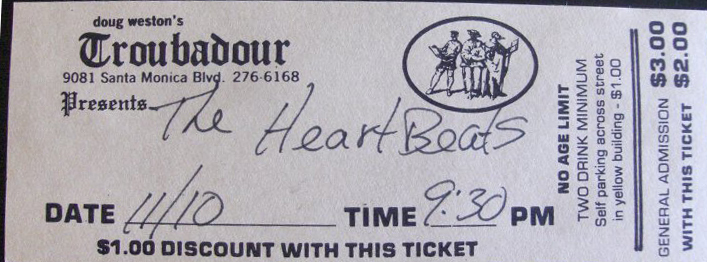 doug weston's
Troubadour
9081 Santa Monica Blvd. 276-6168
Presents The HeartBeats
DATE 11/10 TIME 9:30 PM
$1.00 DISCOUNT WITH THIS TICKET
NO AGE LIMIT
TWO DRINK MINIMUM
Self parking across street
in yellow building - $1.00
GENERAL ADMISSION $3.00
WITH THIS TICKET $2.00